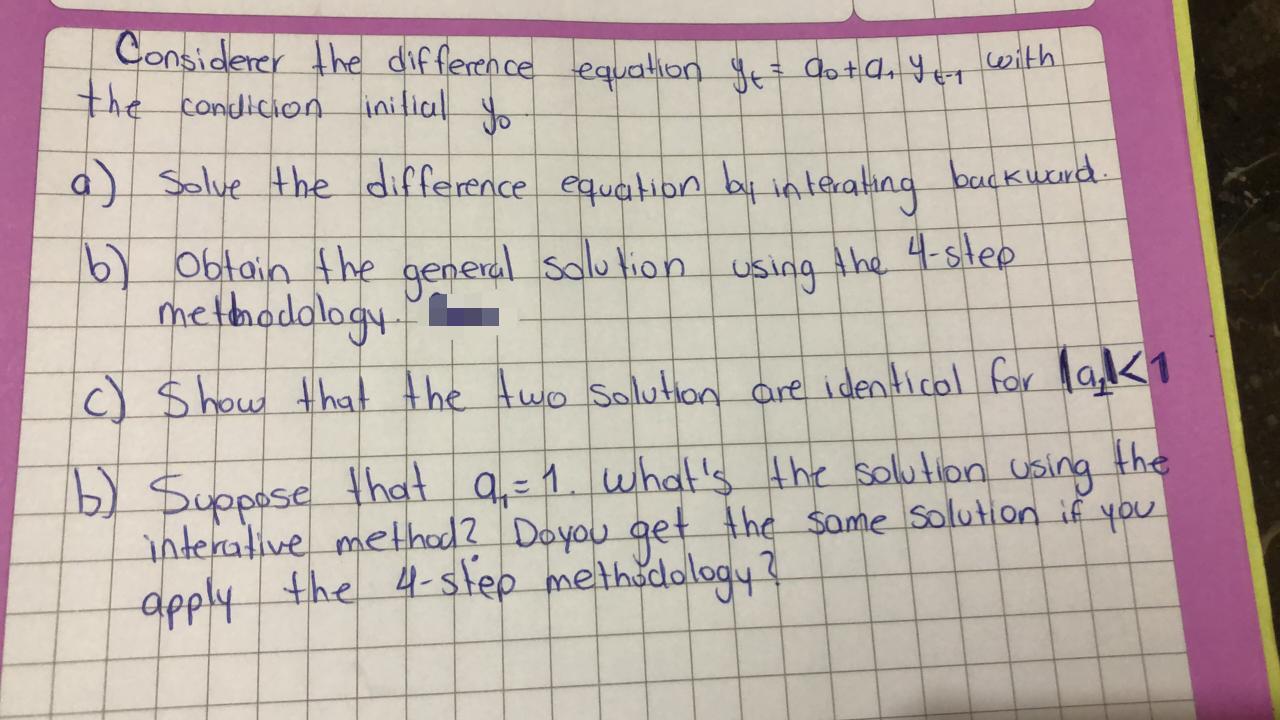 Considerer the difference equation yt = a0 + a1 yt-1 with
the condicion initial y0
a) Solve the difference equation by interating backward.
b) Obtain the general solution using the 4-step
methodology.
c) Show that the two solution are identical for |a1|<1
b) Suppose that a1 = 1. what's the solution using the
interative method? Do you get the same solution if you
apply the 4-step methodology?